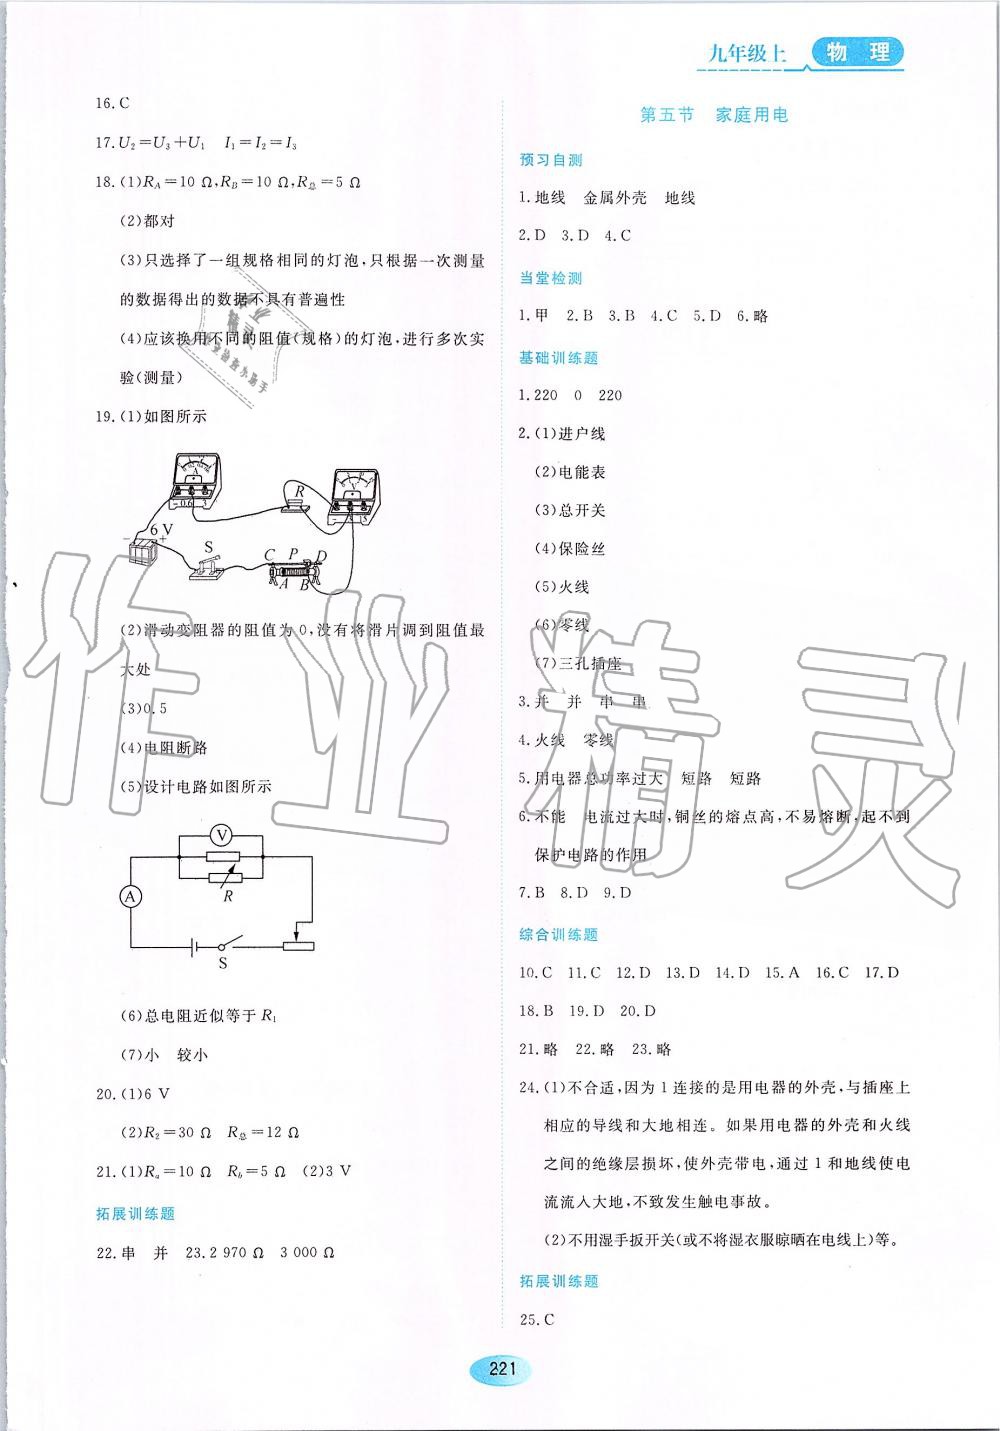 九年级上 物理
16.C
17.U₂=U₃+U₁ I₁=I₂=I₃
18.(1)R_A=10 Ω,R_B=10 Ω,R总=5 Ω
(2)都对
(3)只选择了一组规格相同的灯泡,只根据一次测量
的数据得出的数据不具有普遍性
(4)应该换用不同的阻值(规格)的灯泡,进行多次实
验(测量)
19.(1)如图所示
A
-0.6 3
V
R
6 V
- +
S
C P D
A B
(2)滑动变阻器的阻值为0,没有将滑片调到阻值最
大处
(3)0.5
(4)电阻断路
(5)设计电路如图所示
V
A
R
S
(6)总电阻近似等于R₁
(7)小 较小
20.(1)6 V
(2)R₂=30 Ω R总=12 Ω
21.(1)Rₐ=10 Ω R_b=5 Ω (2)3 V
拓展训练题
22.串 并 23.2 970 Ω 3 000 Ω
第五节 家庭用电
预习自测
1.地线 金属外壳 地线
2.D 3.D 4.C
当堂检测
1.甲 2.B 3.B 4.C 5.D 6.略
基础训练题
1.220 0 220
2.(1)进户线
(2)电能表
(3)总开关
(4)保险丝
(5)火线
(6)零线
(7)三孔插座
3.并 并 串 串
4.火线 零线
5.用电器总功率过大 短路 短路
6.不能 电流过大时,铜丝的熔点高,不易熔断,起不到
保护电路的作用
7.B 8.D 9.D
综合训练题
10.C 11.C 12.D 13.D 14.D 15.A 16.C 17.D
18.B 19.D 20.D
21.略 22.略 23.略
24.(1)不合适,因为1连接的是用电器的外壳,与插座上
相应的导线和大地相连。如果用电器的外壳和火线
之间的绝缘层损坏,使外壳带电,通过1和地线使电
流流入大地,不致发生触电事故。
(2)不用湿手扳开关(或不将湿衣服晾晒在电线上)等。
拓展训练题
25.C
221
作业精灵